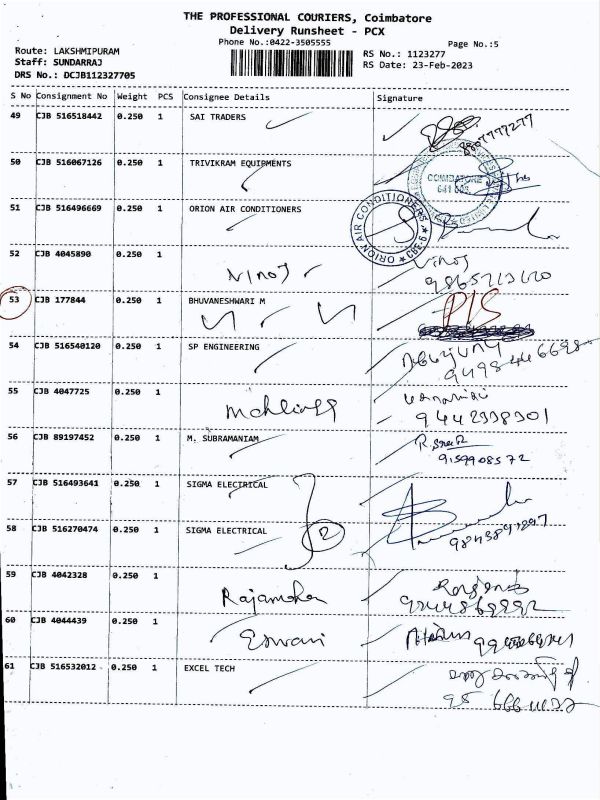 THE PROFESSIONAL COURIERS, Coimbatore
Delivery Runsheet - PCX
Phone No.:0422-3505555
Page No.:5
Route: LAKSHMIPURAM
Staff: SUNDARRAJ
DRS No.: DCJB112327705
RS No.: 1123277
RS Date: 23-Feb-2023
S No Consignment No Weight PCS Consignee Details Signature
49 CJB 516518442 0.250 1 SAI TRADERS
50 CJB 516067126 0.250 1 TRIVIKRAM EQUIPMENTS
COIMBATORE
641 003
51 CJB 516496669 0.250 1 ORION AIR CONDITIONERS
ORION AIR CONDITIONERS
52 CJB 4045890 0.250 1 Vinoj Vinoj
53 CJB 177844 0.250 1 BHUVANESHWARI M PIS
54 CJB 516540120 0.250 1 SP ENGINEERING
55 CJB 4047725 0.250 1
9442338301
56 CJB 89197452 0.250 1 M. SUBRAMANIAM
9159908572
57 CJB 516493641 0.250 1 SIGMA ELECTRICAL
58 CJB 516270474 0.250 1 SIGMA ELECTRICAL 2
59 CJB 4042328 0.250 1 Rajamohan
60 CJB 4044439 0.250 1 Eswari
61 CJB 516532012 0.250 1 EXCEL TECH